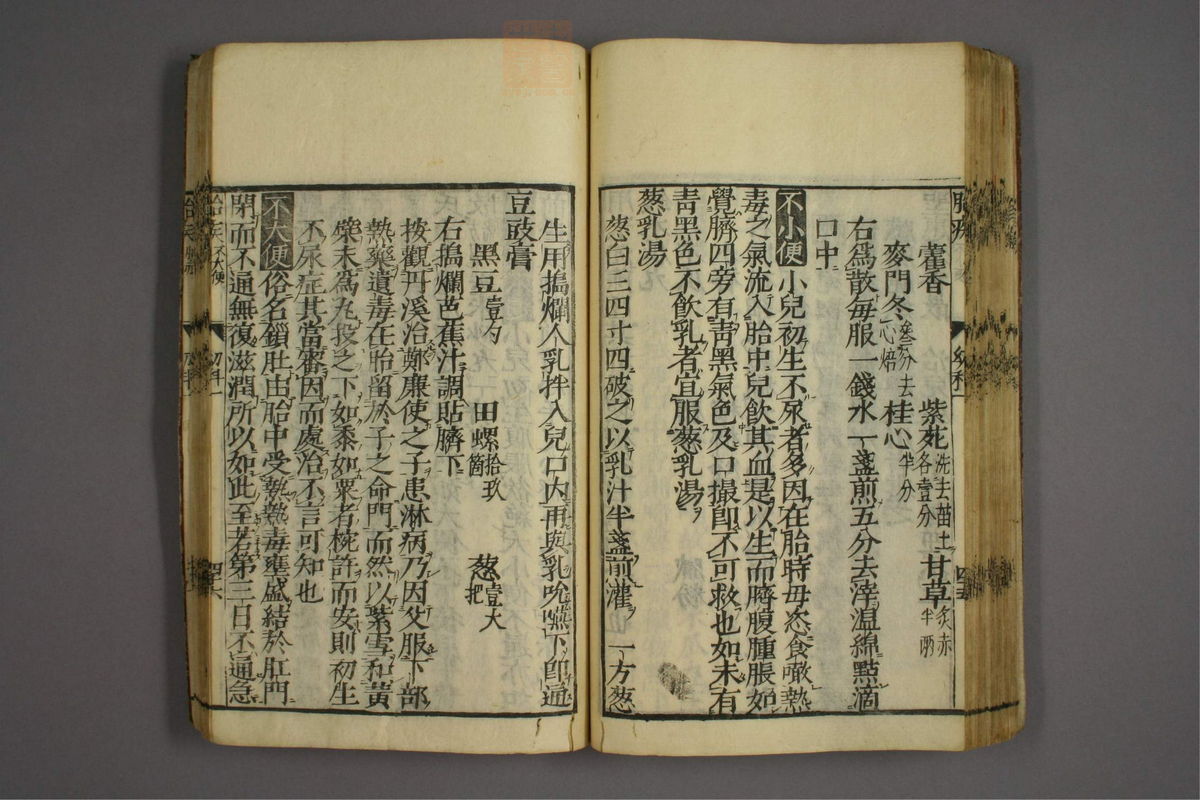 藿香 紫菀洗去苗土各壹分 甘草炙赤半兩
麥門冬參分去心焙 桂心半分
右爲散每服一錢水一盞煎五分去滓溫綿點滴
口中
不小便 小兒初生不尿者多因在胎時母恣食噉熱
毒之氣流入胎中兒飲其血是以生而臍腹腫脹如
覺臍四旁有靑黑氣色及口撮卽不可救也如未有
靑黑色不飲乳者宜服葱乳湯
葱乳湯
葱白三四寸四破之以乳汁半盞煎灌 一方葱
生用搗爛人乳拌入兒口內再與乳吮嚥下卽通
豆豉膏
黑豆壹勺 田螺拾玖箇 葱壹大把
右搗爛芭蕉汁調貼臍下
按觀丹溪治鄭廉使之子患淋病乃因父服下部
熱藥遺毒在胎留於子之命門而然以紫雪和黃
蘗末爲丸投之下如黍如粟者梡許而安則初生
不尿症其當審因而處治不言可知也
不大便 俗名鎖肚由胎中受熱熱毒壅盛結於肛門
閉而不通無復滋潤所以如此至若第三日不通急